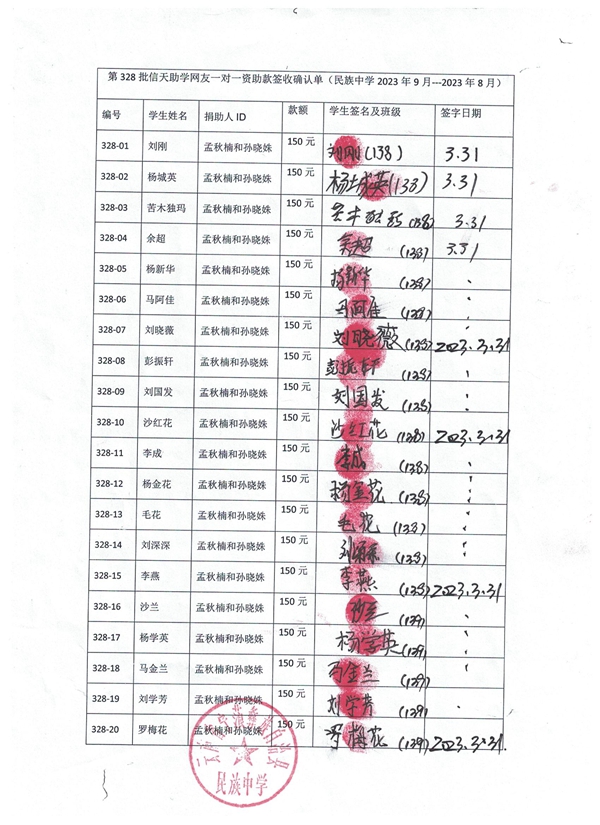 第 328 批信天助学网友一对一资助款签收确认单（民族中学 2023 年 9 月---2023 年 8 月）
编号 学生姓名 捐助人 ID 款额 学生签名及班级 签字日期
328-01 刘刚 孟秋楠和孙晓姝 150 元 刘刚(138) 3.31
328-02 杨城英 孟秋楠和孙晓姝 150 元 杨城英(138) 3.31
328-03 苦木独玛 孟秋楠和孙晓姝 150 元 (138) 3.31
328-04 余超 孟秋楠和孙晓姝 150 元 (138) 3.31
328-05 杨新华 孟秋楠和孙晓姝 150 元 杨新华 (138)
328-06 马阿佳 孟秋楠和孙晓姝 150 元 马阿佳 (138)
328-07 刘晓薇 孟秋楠和孙晓姝 150 元 刘晓薇(138) 2023.3.31
328-08 彭振轩 孟秋楠和孙晓姝 150 元 彭振轩 (138)
328-09 刘国发 孟秋楠和孙晓姝 150 元 刘国发 (138)
328-10 沙红花 孟秋楠和孙晓姝 150 元 沙红花 (138) 2023.3.31
328-11 李成 孟秋楠和孙晓姝 150 元 李成 (138)
328-12 杨金花 孟秋楠和孙晓姝 150 元 杨金花 (138)
328-13 毛花 孟秋楠和孙晓姝 150 元 毛花 (138)
328-14 刘深深 孟秋楠和孙晓姝 150 元 (138)
328-15 李燕 孟秋楠和孙晓姝 150 元 李燕 (138) 2023.3.31
328-16 沙兰 孟秋楠和孙晓姝 150 元 沙兰 (139)
328-17 杨学英 孟秋楠和孙晓姝 150 元 杨学英(139)
328-18 马金兰 孟秋楠和孙晓姝 150 元 马金兰 (139)
328-19 刘学芳 孟秋楠和孙晓姝 150 元 刘学芳 (139)
328-20 罗梅花 孟秋楠和孙晓姝 150 元 罗梅花 (139) 2023.3.31.
民族中学